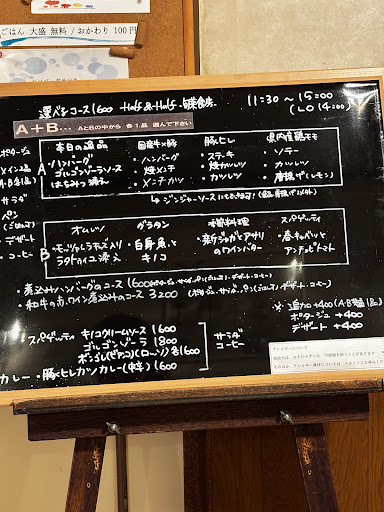 ごはん 大盛 無料 / おかわり 100円
選べるコース1600 Half & Half
11:30 〜 15:00
(LO 14:00)
A+B... AとBの中から 各1品 選んで下さい
ポタージュ
メイン
サラダ
パン
(ごはん)
デザート
コーヒー
A
本日の逸品
ハンバーグ
ゴルゴンゾーラソース
はちみつ添え
国産牛×豚
・ハンバーグ
・焼メンチ
・メンチカツ
豚ヒレ
・ステーキ
・焼カツレツ
・カツレツ
県内産鶏モモ
・ソテー
・カツレツ
・唐揚げ(レモン)
↳ ジンジャーソースにも出来ます (唐揚げ以外)
B
オムレツ
・モッツァレラチーズ入り
ラタトゥイユ添え
グラタン
・白身魚と
キノコ
・新ジャガとアサリ
のワインバター
スパゲッティ
・春キャベツと
アンチョビトマト
・煮込みハンバーグのコース
・和牛の赤ワイン煮込みのコース 3200
※ 追加 +400 (A・B各1品)
ポタージュ +400
デザート +400
スパゲッティ キノコクリームソース 1600
ゴルゴンゾーラ 1800
サラダ
コーヒー
カレー・豚ヒレカツカレー(中辛) 1600
アレルギーについて